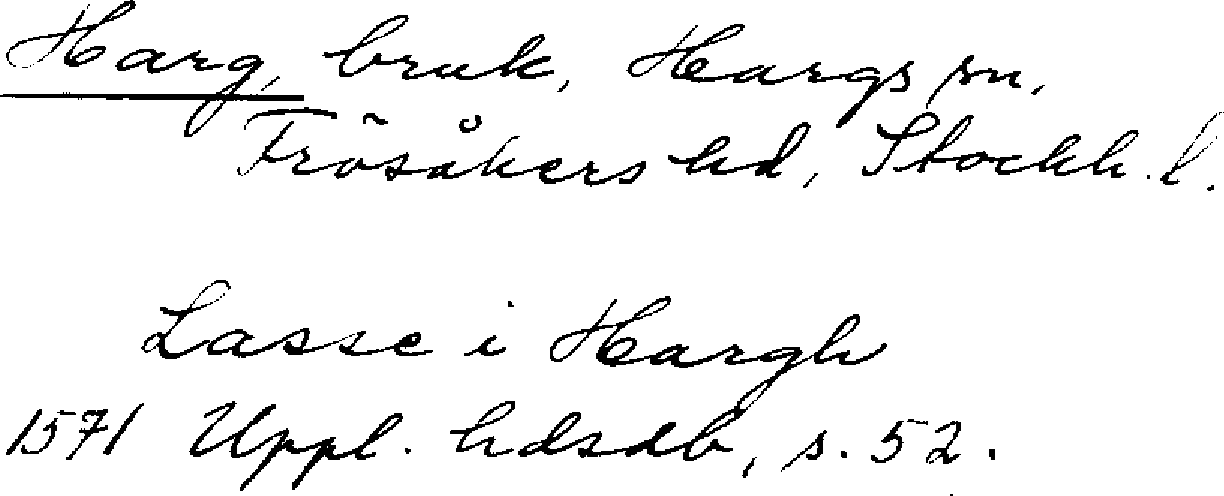 Harg, bruk, Hargs sn,
Frösåkers hd, Stockh. l.
Lasse i Hargh
1571 Uppl. hdsdb, s. 52.